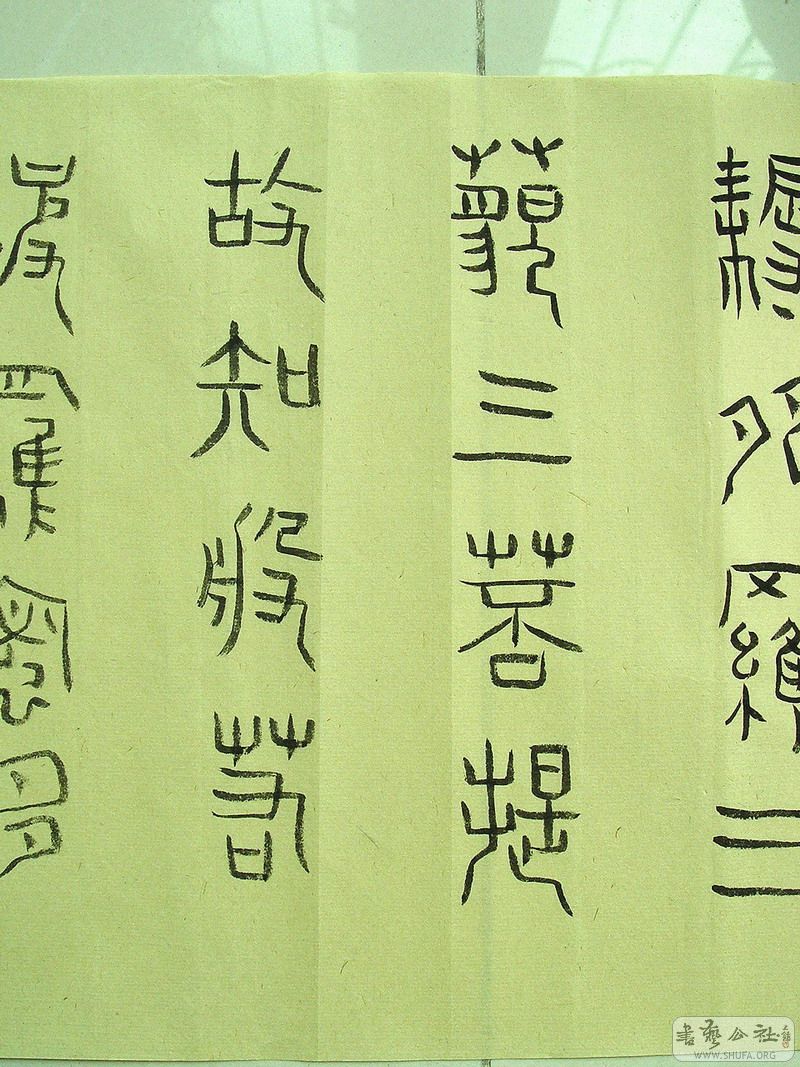 耨多羅三
藐三菩提
故知般若
波羅蜜多
書藝公社
WWW.SHUFA.ORG